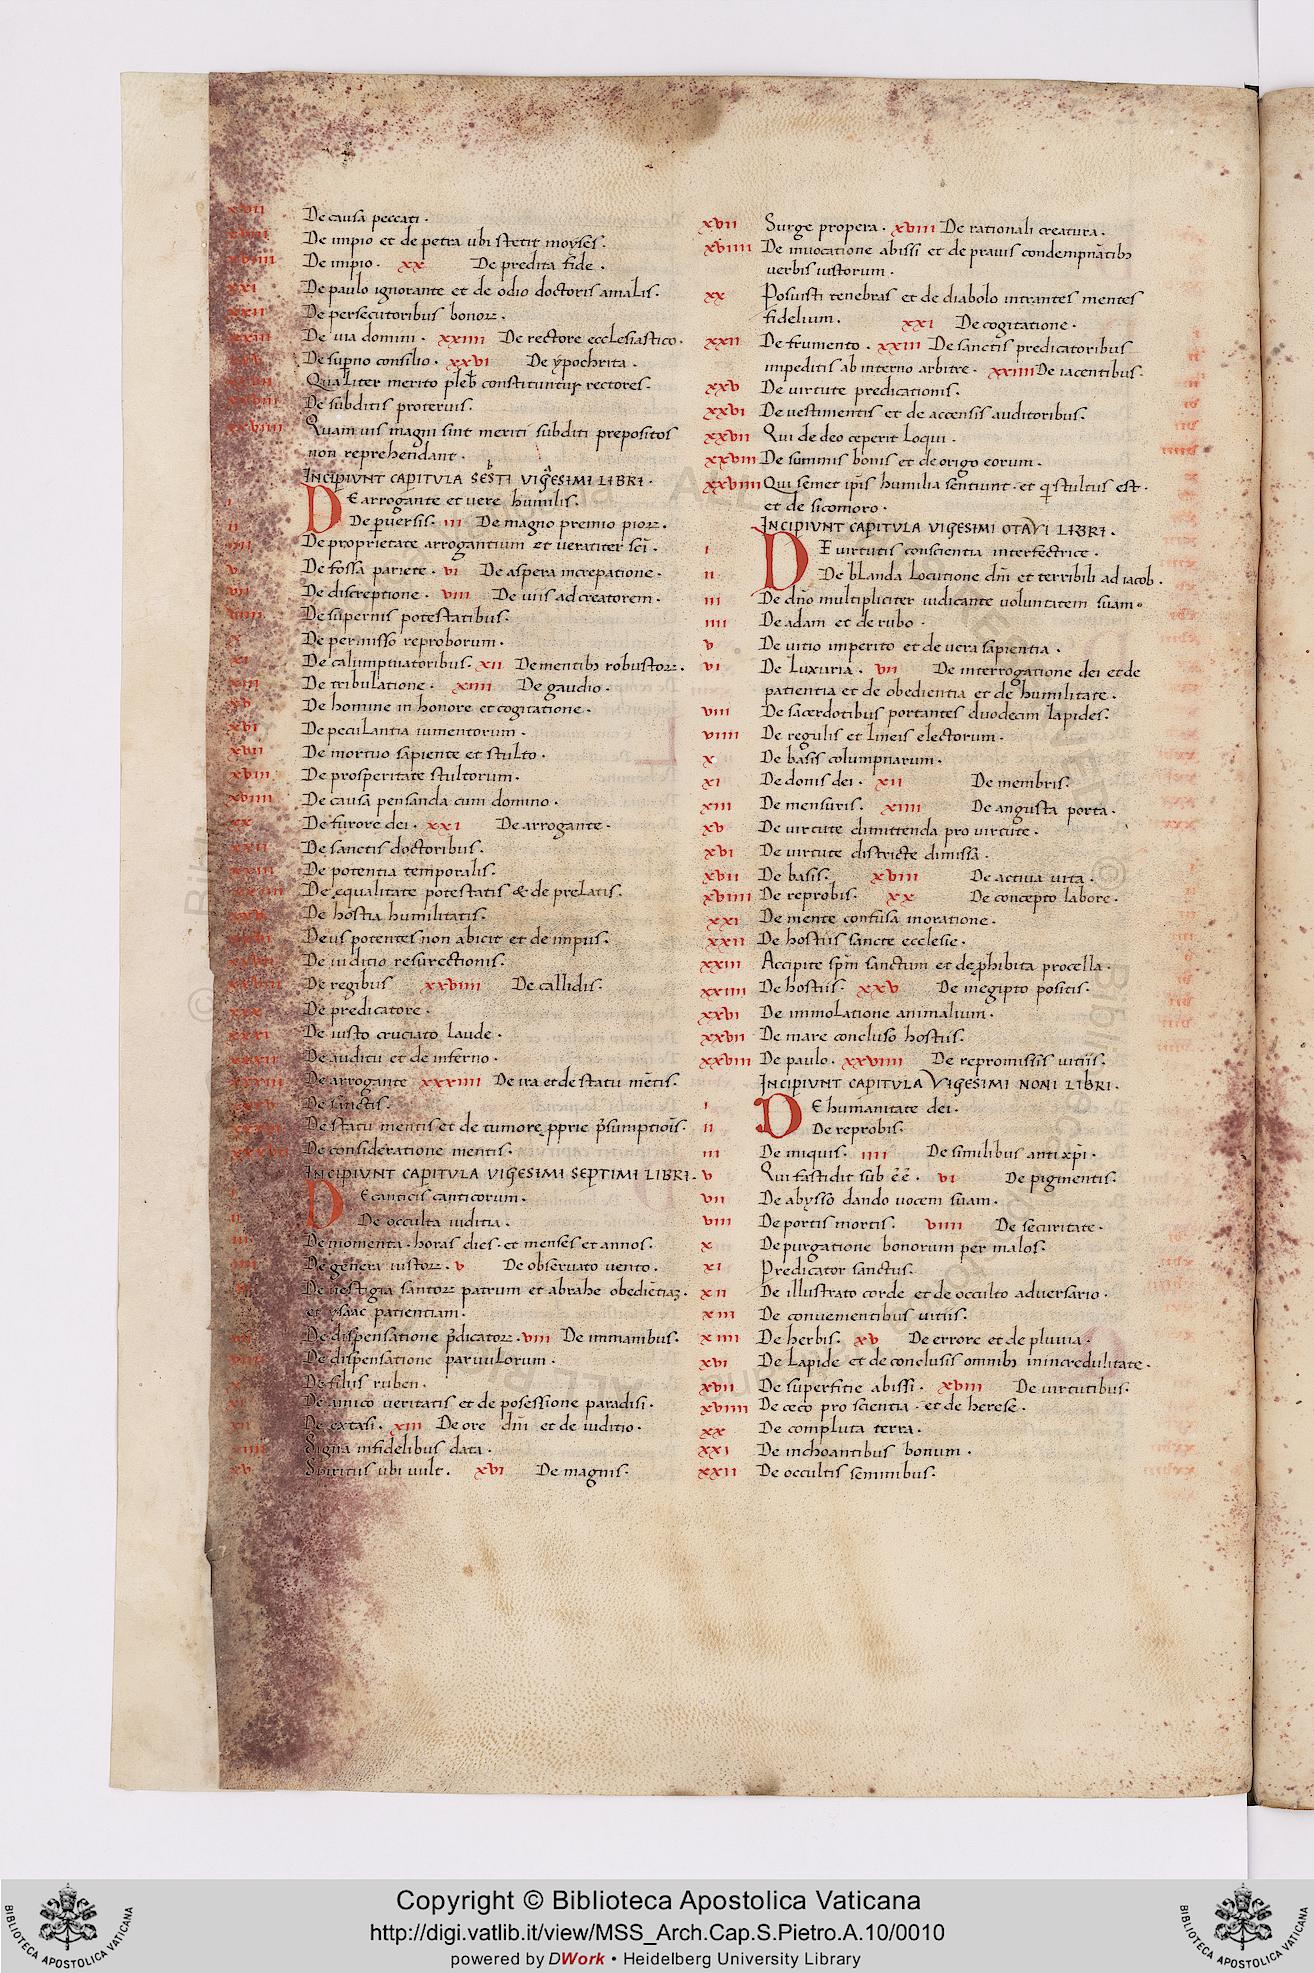 xvii De causa peccati.
xviii De impio et de petra ubi stetit moyses.
xviiii De impio. xx De predita fide.
xxi De paulo ignorante et de odio doctoris amalis.
xxii De persecutoribus bonoꝝ.
xxiii De via domini. xxiiii De rectore ecclesiastico.
xxv De suꝑno consilio. xxvi De ypochrita.
xxvii Qualiter merito pleb constituuntur rectores.
xxviii De subditis protervis.
xxviiii Quam uis magni sint meriti subditi prepositos
non reprehendant.
INCIPIVNT CAPITVLA SESTI VIGESIMI LIBRI.
i DE arrogante et vere humilis.
ii De ꝑversis. iii De magno premio pioꝝ.
iiii De proprietate arrogantium et veraciter sci.
v De fossa pariete. vi De aspera increpatione.
vii De discreptione. viii De viis ad creatorem.
viiii De supernis potestatibus.
x De permisso reproborum.
xi De calumptuatoribus. xii De mentibꝫ robustoꝝ.
xiii De tribulatione. xiiii De gaudio.
xv De homine in honore et cogitatione.
xvi De peculantia iumentorum.
xvii De mortuo sapiente et stulto.
xviii De prosperitate stultorum.
xviiii De causa pensanda cum domino.
xx De furore dei. xxi De arrogante.
xxii De sanctis doctoribus.
xxiii De potentia temporalis.
xxiiii De equalitate potestatis & de prelatis.
xxv De hostia humilitatis.
xxvi Deus potentes non abicit et de impiis.
xxvii De iuditio resurectionis.
xxviii De regibus xxviiii De callidis.
xxx De predicatore.
xxxi De iusto cruciato laude.
xxxii De auditu et de inferno.
xxxiii De arrogante xxxiiii De ira et de statu mētis.
xxxv De sanctis.
xxxvi De statu mentis et de tumore ꝓprie p̄sumptiōis.
xxxvii De consideratione mentis.
INCIPIVNT CAPITVLA VIGESIMI SEPTIMI LIBRI.
i DE canticis canticorum.
ii De occulta iuditia.
iii De momenta. horas dies. et menses et annos.
iiii De genera iustoꝝ. v De observato vento.
vi De vestigia santoꝝ patrum et abrahe obediētiaꝫ.
et ysaac patientiam.
vii De dispensatione p̄dicatoꝝ. viii De immanibus.
viiii De dispensatione parvulorum.
x De filiis ruben.
xi De amico veritatis et de posessione paradisi.
xii De extasi. xiii De ore dn̄i et de iuditio.
xiiii Signa infidelibus data.
xv Spiritus ubi vult. xvi De magnis.
xvii Surge propera. xviii De rationali creatura.
xviiii De invocatione abissi et de pravis condempnātibꝫ
verbis iustorum.
xx Posuisti tenebras et de diabolo intrantes mentes
fidelium. xxi De cogitatione.
xxii De frumento. xxiii De sanctis predicatoribus
impeditis ab interno arbitre. xxiiii De iacentibus.
xxv De virtute predicationis.
xxvi De vestimentis et de accensis auditoribus.
xxvii Qui de deo ceperit loqui.
xxviii De summis bonis et de origo eorum.
xxviiii Qui semet ip̄is humilia sentiunt. et q̄ stultus est.
et de sicomoro.
INCIPIVNT CAPITVLA VIGESIMI OTAVI LIBRI.
i DE virtutis conscientia interfectrice.
ii De blanda locutione dn̄i et terribili ad iacob.
iii De dn̄o multipliciter iudicante voluntatem suam.
iiii De adam et de rubo.
v De vitio imperito et de vera sapientia.
vi De luxuria. vii De interrogatione dei et de
patientia et de obedientia et de humilitate.
viii De sacerdotibus portantes duodecim lapides.
viiii De regulis et lineis electorum.
x De basis columpnarum.
xi De donis dei. xii De membris.
xiii De mensuris. xiiii De angusta porta.
xv De virtute dimittenda pro virtute.
xvi De virtute districte dimissa.
xvii De basis. xviii De activa vita.
xviiii De reprobis. xx De concepto labore.
xxi De mente confusa in oratione.
xxii De hostiis sancte ecclesie.
xxiii Accipite sp̄m sanctum et de ꝓhibita procella.
xxiiii De hostiis. xxv De inegipto positis.
xxvi De immolatione animalium.
xxvii De mare concluso hostiis.
xxviii De paulo. xxviiii De repromissis vitiis.
INCIPIVNT CAPITVLA VIGESIMI NONI LIBRI.
i DE humanitate dei.
ii De reprobis.
iii De iniquis. iiii De similibus anti xp̄i.
v Qui fastidit sub ēē. vi De pigmentis.
vii De abysso dando vocem suam.
viii De portis mortis. viiii De securitate.
x De purgatione bonorum per malos.
xi Predicator sanctus.
xii De illustrato corde et de occulto adversario.
xiii De convenientibus vitiis.
xiiii De herbis. xv De errore et de pluvia.
xvi De lapide et de conclusis omnibꝫ in incredulitate.
xvii De superfitie abissi. xviii De virtutibus.
xviiii De ceco pro scientia. et de herese.
xx De compluta terra.
xxi De inchoantibus bonum.
xxii De occultis seminibus.
Copyright © Biblioteca Apostolica Vaticana
http://digi.vatlib.it/view/MSS_Arch.Cap.S.Pietro.A.10/0010
powered by DWork • Heidelberg University Library
BIBLIOTECA APOSTOLICA VATICANA
BIBLIOTECA APOSTOLICA VATICANA